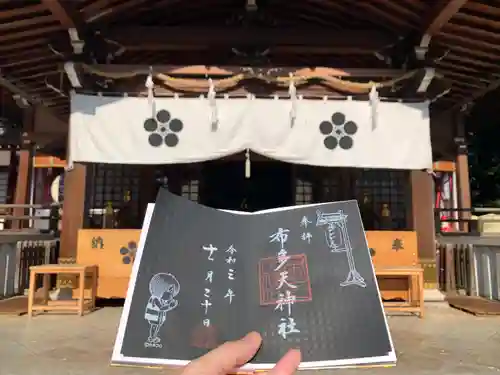 奉拝
布多天神社
令和三年
十一月三十日
納
奉